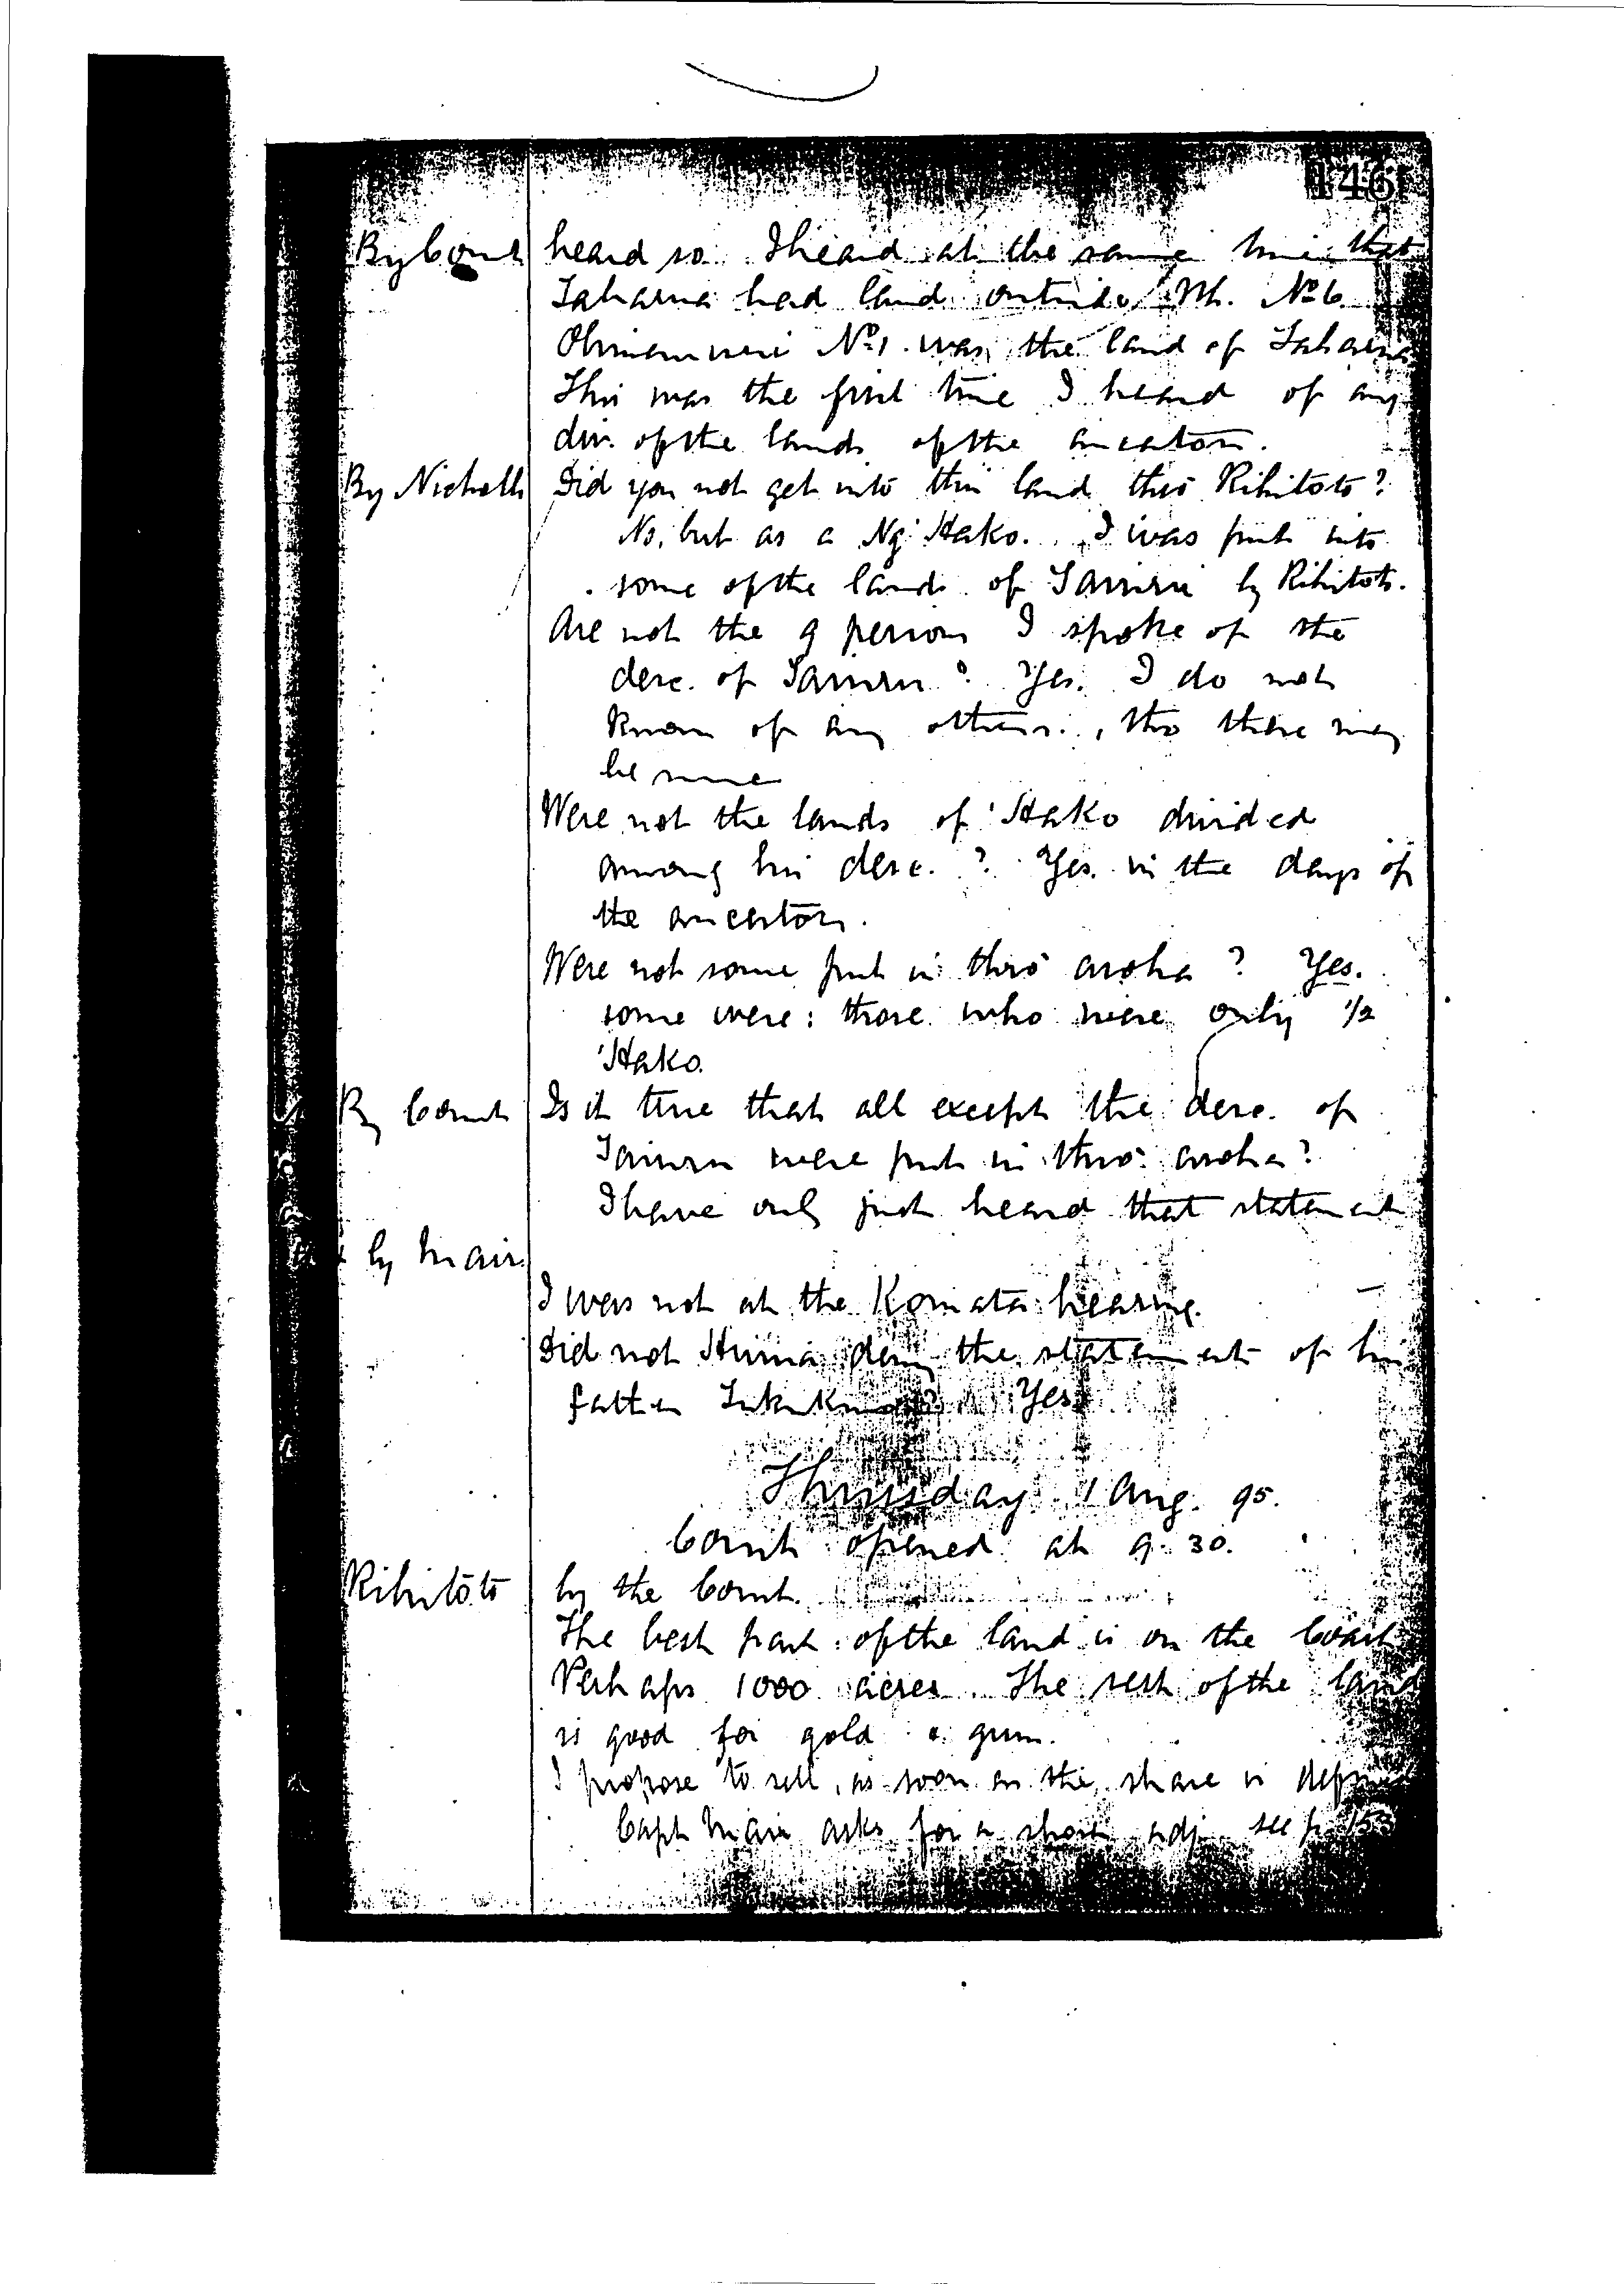 146
By Court heard so. I heard at the same time that
Taharua had land outside M. No 6.
No 1. was the land of Taharua
This was the first time I heard of any
div. of the lands of the ancestors.
By Nicholls Did you not get into this land thro' Rihitoto?
No, but as a Ng' Hako. I was put into
some of the lands of Tauiru by Rihitoto.
Are not the 9 persons I spoke of the
desc. of Tauiru? Yes. I do not
know of any others, tho there may
be some
Were not the lands of 'Hako divided
among his desc.? Yes. in the days of
the ancestors.
Were not some put in thro' aroha? Yes.
some were: those who were only 1/2
'Hako.
By Court Is it true that all except the desc. of
Tauiru were put in thro' aroha?
I have only just heard that statement
by Mair.
I was not at the Komata hearing.
Did not deny the statement of his
father Yes
Thursday 1 Aug. 95.
Court opened at 9.30.
Rihitoto by the Court.
The best part of the land is on the Coast
Perhaps 1000 acres. The rest of the land
is good for gold & gum.
I propose to sell, as soon as the share is
Capt Mair asks for a short adj. see p. 153